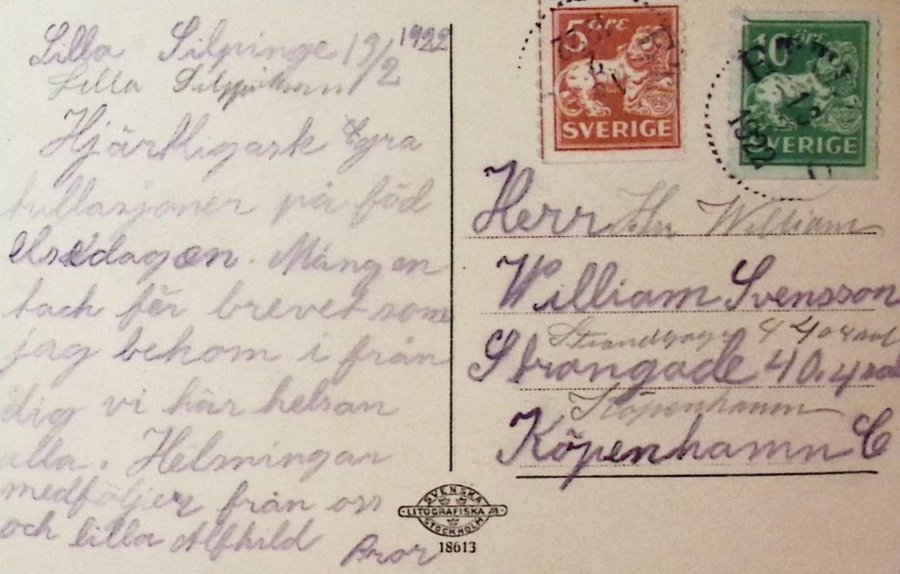 Lilla Silpinge 13/2 1922
Lilla
Hjärtligask Gra
tullasjoner på föd
elsedagen. Mången
tack för brevet som
jag bekom i från
dig vi här helsan
alla. Helsningar
medföljer från oss
och lilla Alfhild
Bror
5 ÖRE
SVERIGE
10 ÖRE
SVERIGE
13 2
1922
Herr Herr William
William Svensson
Strandgage 4 40 4 sal
Strangade 40. 4 sal
Köpenhamn
Köpenhamn C
SVENSKA
LITOGRAFISKA A.B.
STOCKHOLM
18613